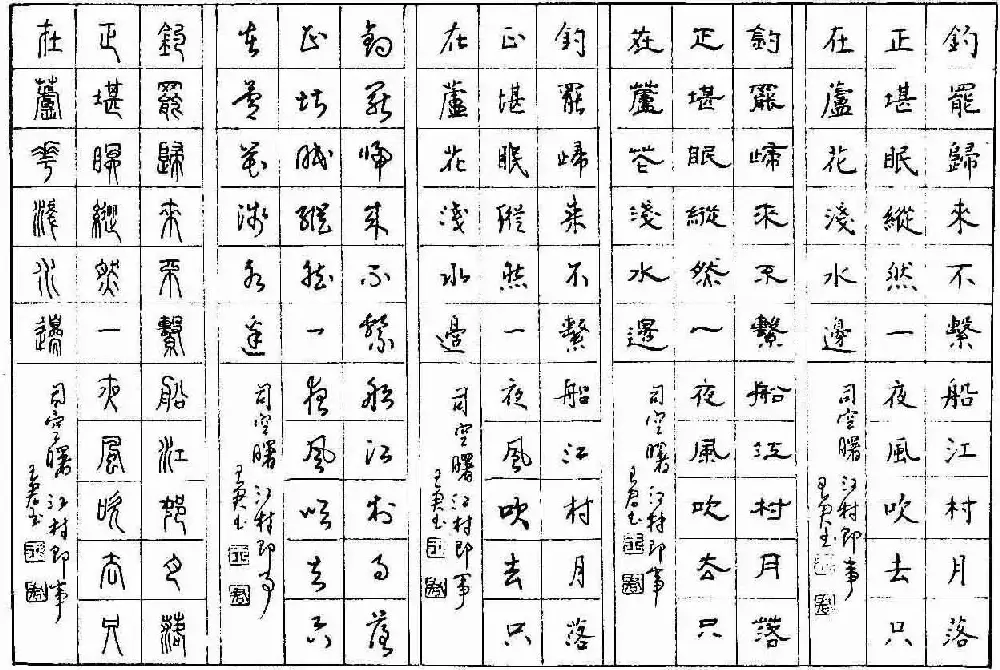 釣罷歸來不繫船江村月落
正堪眠縱然一夜風吹去只
在蘆花淺水邊
司空曙 江村即事
釣罷歸來不繫船江村月落
正堪眠縱然一夜風吹去只
在蘆花淺水邊
司空曙 江村即事
釣罷歸來不繫船江村月落
正堪眠縱然一夜風吹去只
在蘆花淺水邊
司空曙 江村即事
釣罷歸來不繫船江村月落
正堪眠縱然一夜風吹去只
在蘆花淺水邊
司空曙 江村即事
釣罷歸來不繫船江村月落
正堪眠縱然一夜風吹去只
在蘆花淺水邊
司空曙 江村即事